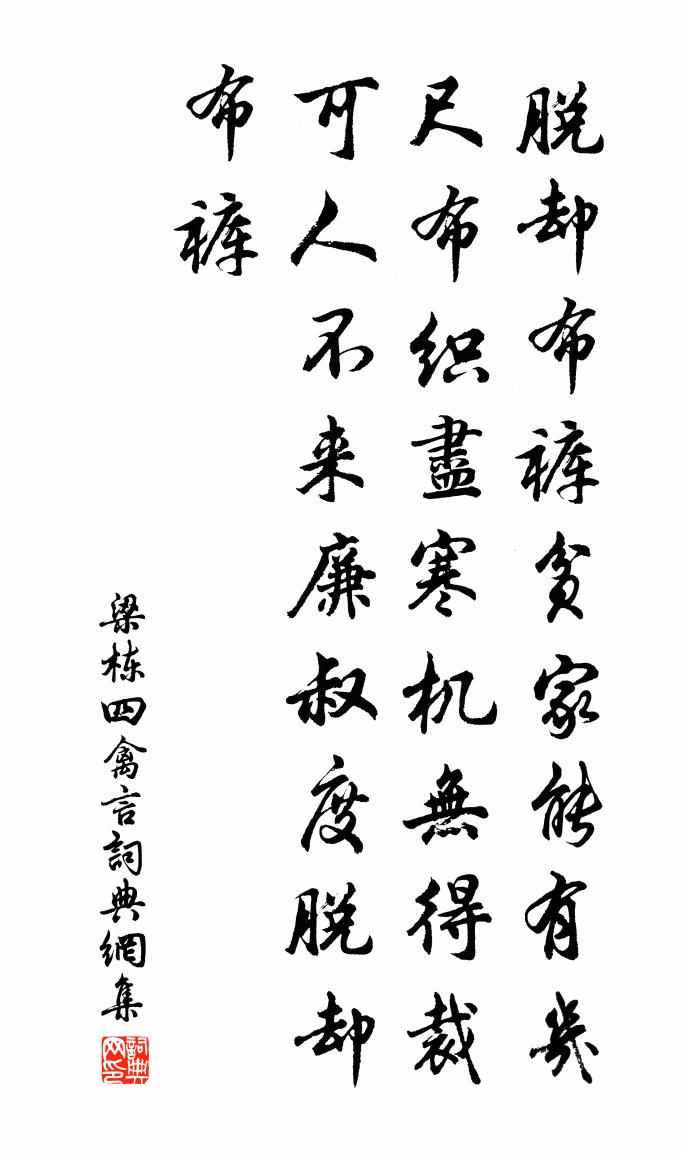 脱却布裤贫家能有幾
尺布织盡寒机無得裁
可人不来廉叔度脱却
布裤
梁栋四禽言詞典網集
詞典网印